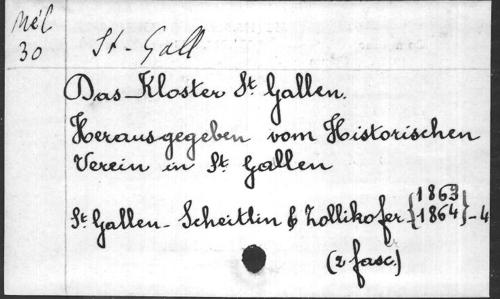 Mél
30
St-Gall
Das Kloster St. Gallen.
Herausgegeben vom Historischen
Verein in St. Gallen
St. Gallen - Scheitlin & Zollikofer {1863
1864} - 4
(2 fasc.)